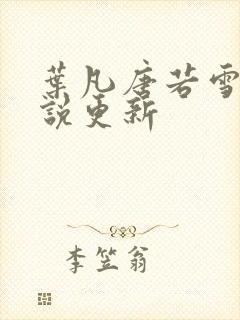 葉凡唐若雪
說更新
李笠翁